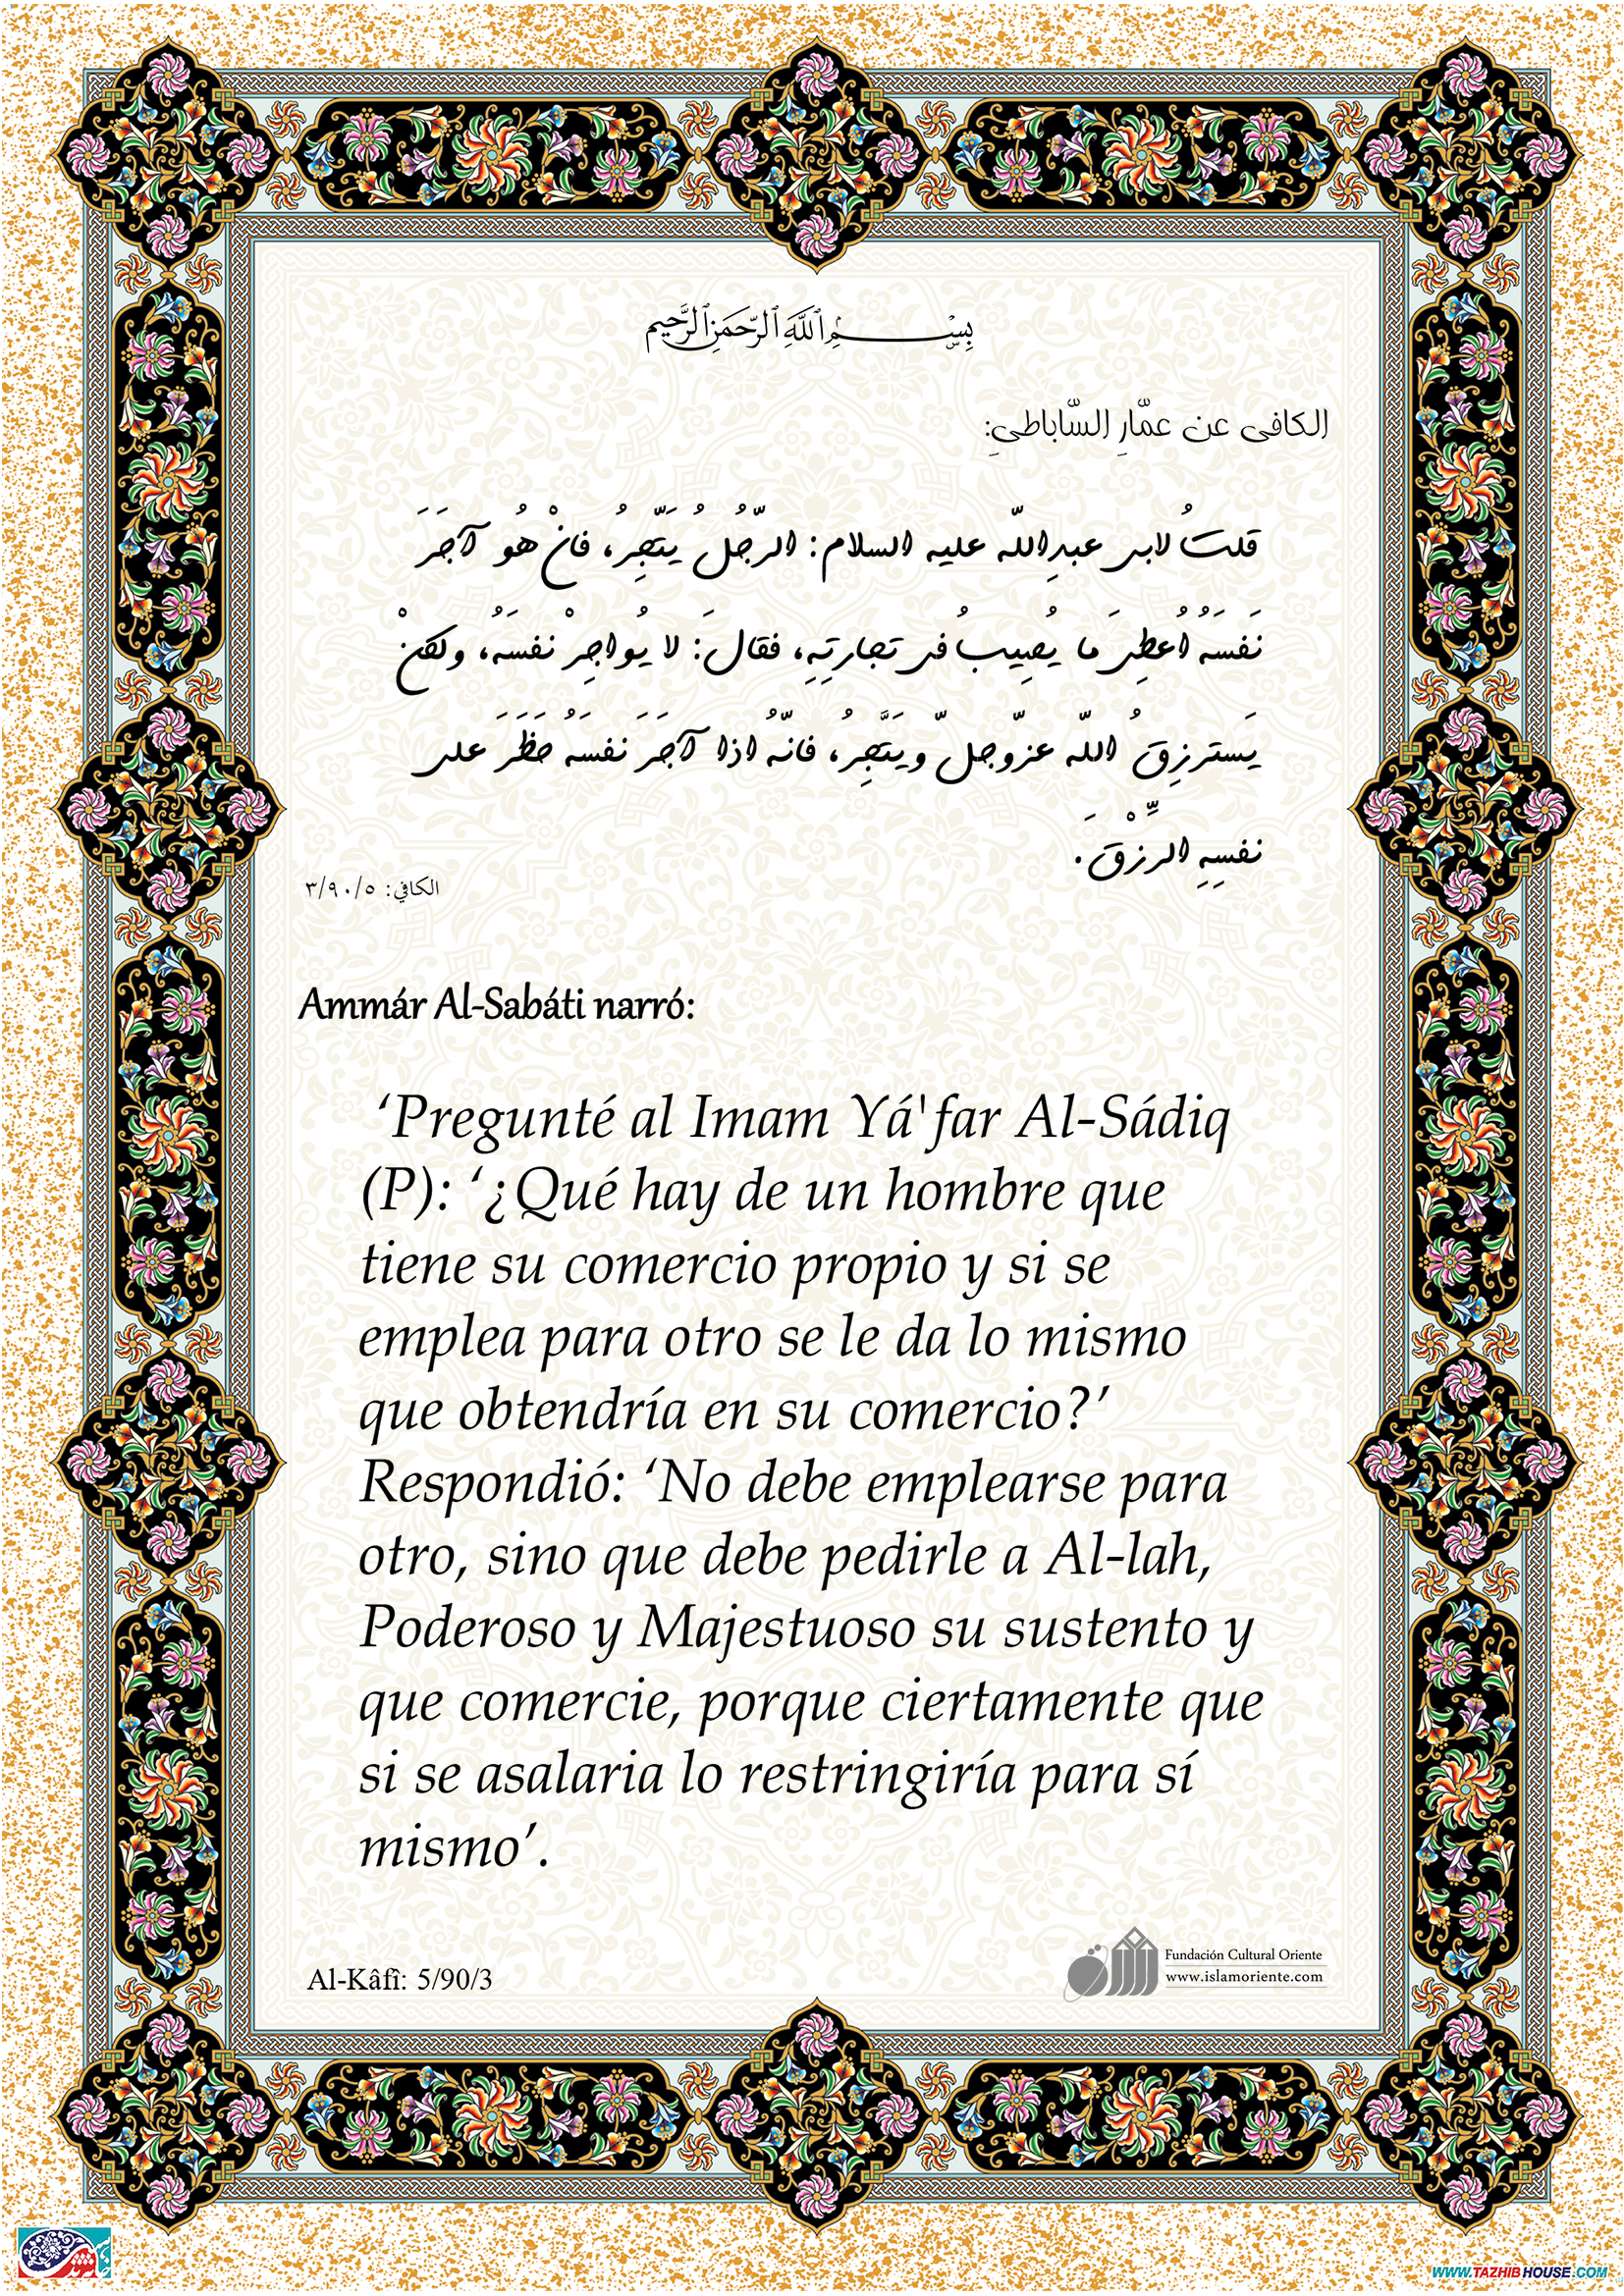 بِسْمِ ٱللَّهِ ٱلرَّحْمَنِ ٱلرَّحِيمِ
الكافى عن عمّارِ السّاباطيِ:
قلتُ لابى عبدِاللّه عليه السلام: الرّجُلُ يَتّجِرُ، فانْ هُو آجَرَ
نَفسَهُ اُعطِىَ ما يُصِيبُ فى تجارتِهِ، فقالَ: لا يُواجِرْ نفسَهُ، ولكنْ
يَسترزِقُ اللّه عزّوجلّ ويَتَّجِرُ، فانّهُ اذا آجَرَ نفسَهُ حَظَرَ على
نفسِهِ الرِّزْقَ.
الكافي: ٣/٩٠/٥
Ammár Al-Sabáti narró:
‘Pregunté al Imam Yá'far Al-Sádiq
(P): ‘¿Qué hay de un hombre que
tiene su comercio propio y si se
emplea para otro se le da lo mismo
que obtendría en su comercio?’
Respondió: ‘No debe emplearse para
otro, sino que debe pedirle a Al-lah,
Poderoso y Majestuoso su sustento y
que comercie, porque ciertamente que
si se asalaria lo restringiría para sí
mismo’.
Fundación Cultural Oriente
www.islamoriente.com
Al-Kâfî: 5/90/3
WWW.TAZHIBHOUSE.COM